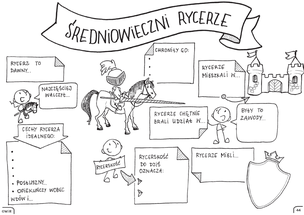 ŚREDNIOWIECZNI RYCERZE
RYCERZ TO
DAWNY...
NAJCZĘŚCIEJ
WALCZYŁ...
CHRONIŁY GO:
RYCERZE
MIESZKALI W...
CECHY RYCERZA
IDEALNEGO:
• POSŁUSZNY,
• OPIEKUŃCZY WOBEC
WDÓW I...
RYCERZE CHĘTNIE
BRALI UDZIAŁ W...
BYŁY TO
ZAWODY...
RYCERSKOŚĆ
RYCERSKOŚĆ
DO DZIŚ
OZNACZA:
RYCERZE MIELI...